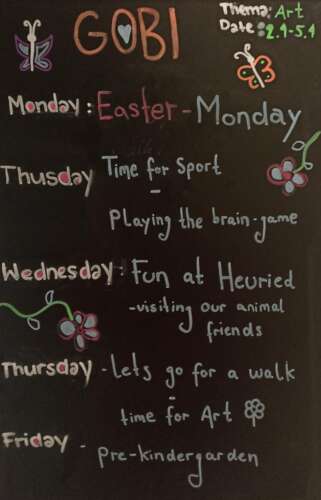 GOBI
Thema: Art
Date: 2.4-5.4
Monday: Easter-Monday
Thusday Time for Sport
-
Playing the brain-game
Wednesday: Fun at Heuried
-visiting our animal
friends
Thursday - Lets go for a walk
-
time for Art
Friday - Pre-kindergarden